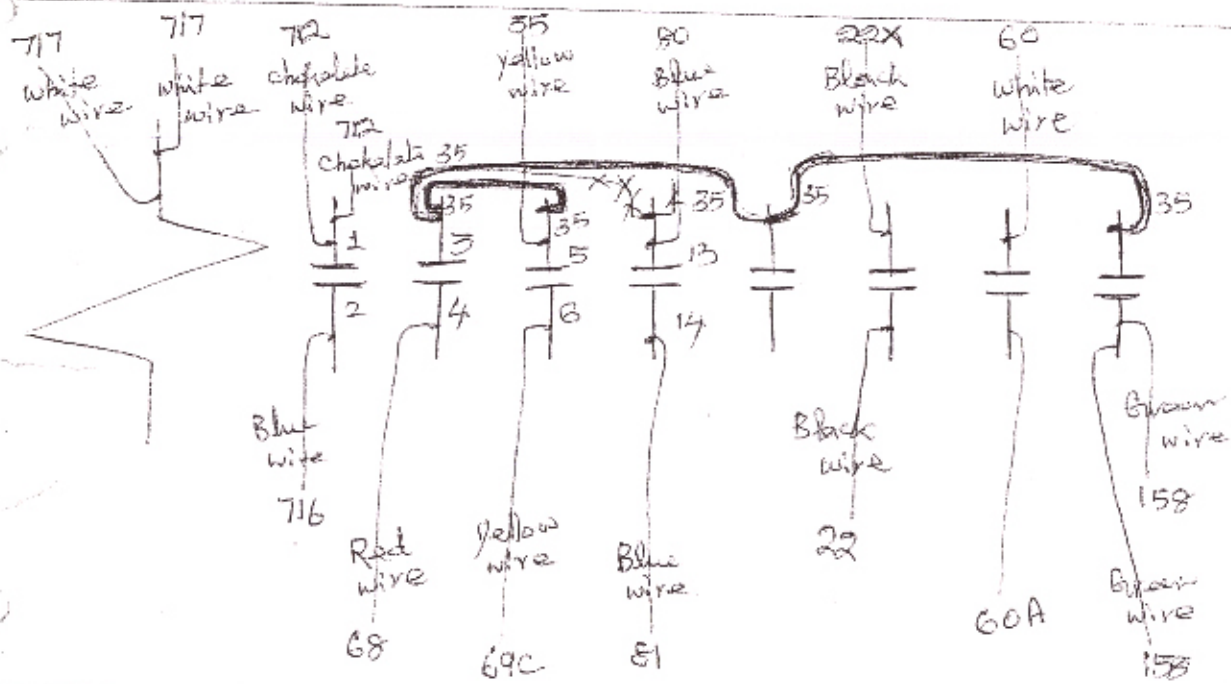 717
white
wire
717
white
wire
712
chokolate
wire
712
Chokolate
wire
35
yellow
wire
80
Blue
wire
22X
Black
wire
60
white
wire
35
35
35
35
35
35
1
3
5
13
2
4
6
14
Blue
wire
716
Red
wire
68
Yellow
wire
69C
Blue
wire
81
Black
wire
22
60A
Green
wire
158
Green
wire
158